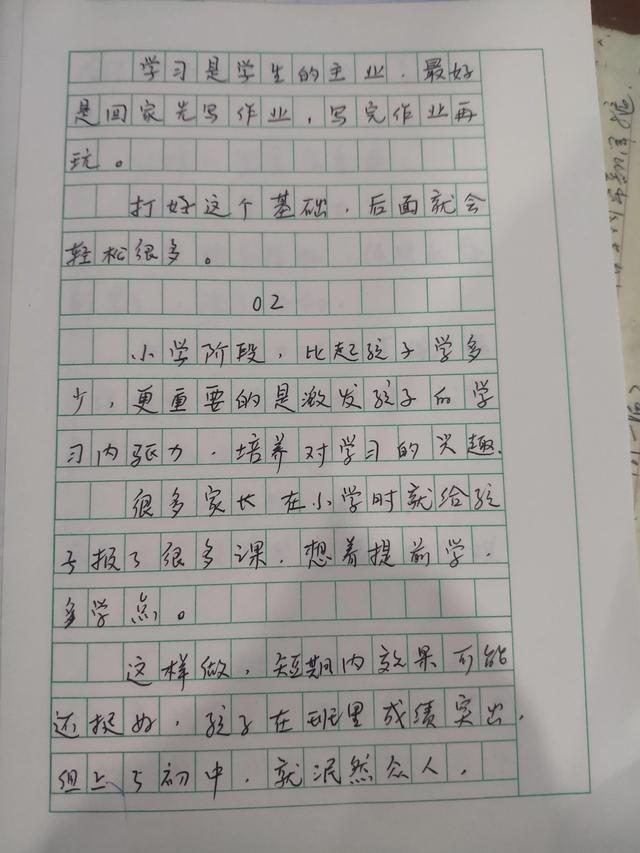 学习是学生的主业，最好
是回家先写作业，写完作业再
玩。
打好这个基础，后面就会
轻松很多。
02
小学阶段，比起孩子学多
少，更重要的是激发孩子的学
习内驱力，培养对学习的兴趣。
很多家长在小学时就给孩
子报了很多课，想着提前学，
多学点。
这样做，短期内效果可能
还挺好，孩子在班里成绩突出，
但上了初中，就泯然众人，